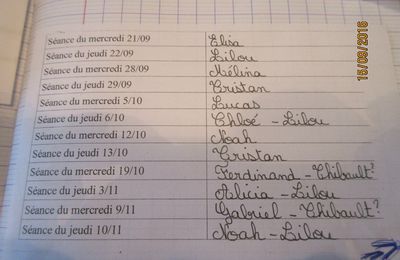 Séance du mercredi 21/09 Elisa
Séance du jeudi 22/09 Lilou
Séance du mercredi 28/09 Mélina
Séance du jeudi 29/09 Tristan
Séance du mercredi 5/10 Lucas
Séance du jeudi 6/10 Chloé - Lilou
Séance du mercredi 12/10 Noah
Séance du jeudi 13/10 Tristan
Séance du mercredi 19/10 Ferdinand - Thibault?
Séance du jeudi 3/11 Alicia - Lilou
Séance du mercredi 9/11 Gabriel - Thibault?
Séance du jeudi 10/11 Noah - Lilou
15/09/2016